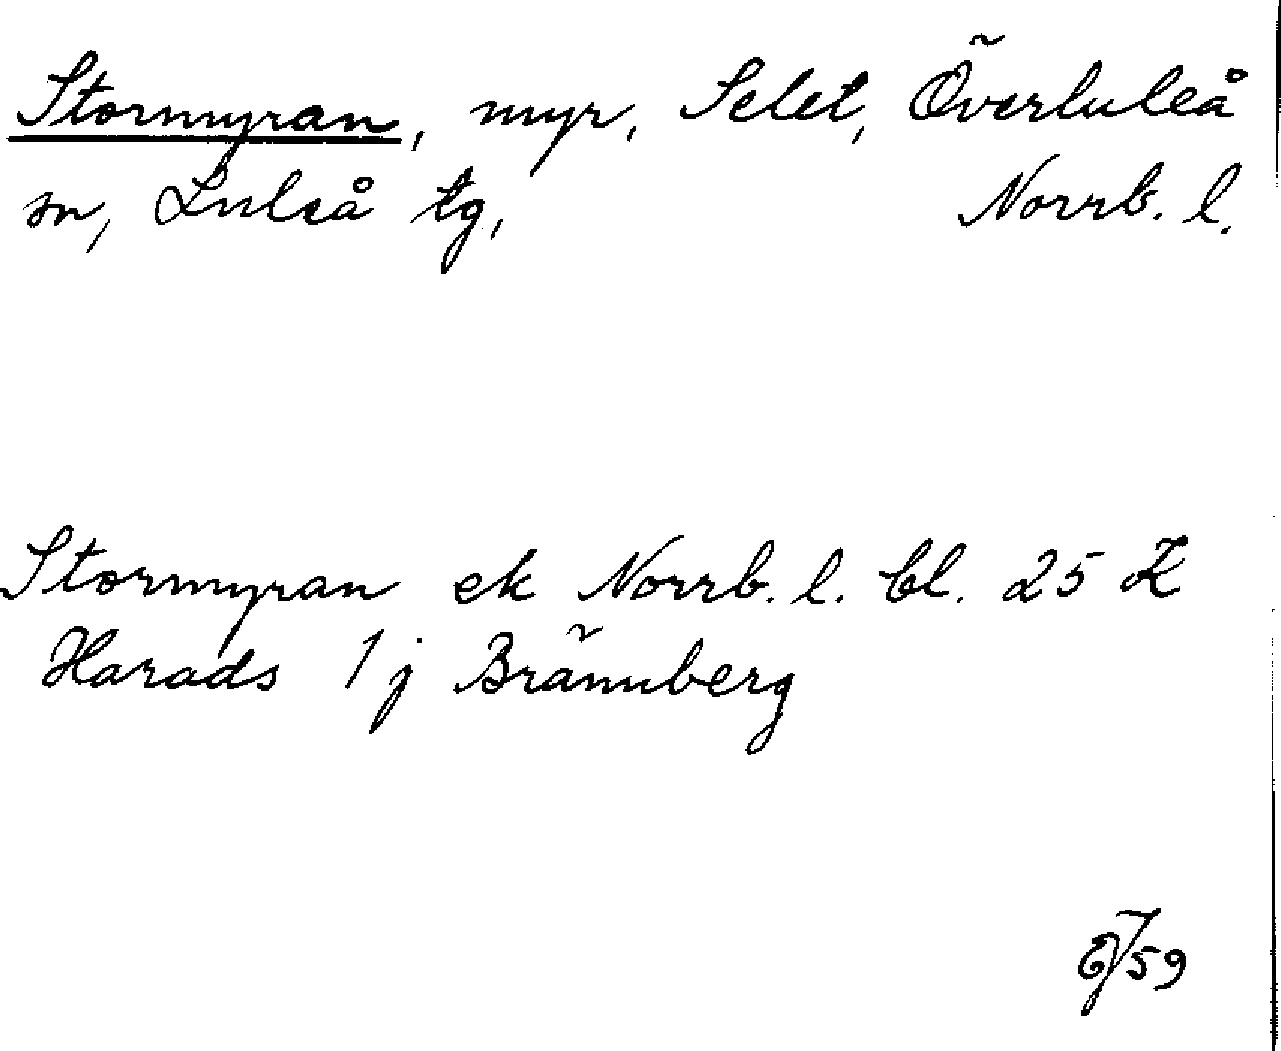 Stormyran, myr, Selet, Överluleå
sn, Luleå tg, Norrb. l.
Stormyran ek Norrb. l. bl. 25 Z
Harads 1 j Brännberg
59